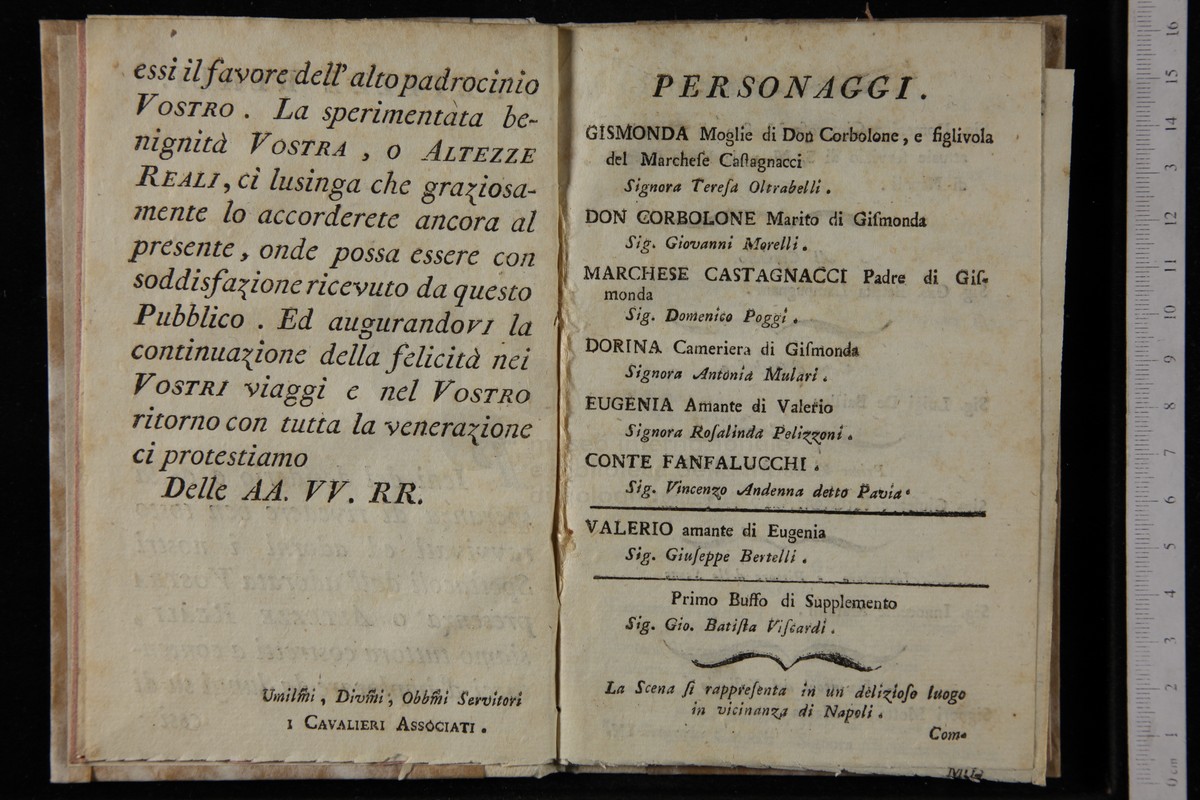 essi il favore dell' alto padrocinio
VOSTRO . La sperimentata be-
nignità VOSTRA , o ALTEZZE
REALI, ci lusinga che graziosa-
mente lo accorderete ancora al
presente, onde possa essere con
soddisfazione ricevuto da questo
Pubblico . Ed augurandoVI la
continuazione della felicità nei
VOSTRI viaggi e nel VOSTRO
ritorno con tutta la venerazione
ci protestiamo
Delle AA. VV. RR.
Umilm̃i , Divm̃i , Obbm̃i Servitori
I CAVALIERI ASSOCIATI .
PERSONAGGI.
GISMONDA Moglie di Don Corbolone, e figlivola
del Marcheſe Caſtagnacci
Signora Tereſa Oltrabelli .
DON CORBOLONE Marito di Giſmonda
Sig. Giovanni Morelli .
MARCHESE CASTAGNACCI Padre di Giſ-
monda
Sig. Domenico Poggi .
DORINA Cameriera di Giſmonda
Signora Antonia Mulari .
EUGENIA Amante di Valerio
Signora Roſalinda Pelizzoni .
CONTE FANFALUCCHI .
Sig. Vincenzo Andenna detto Pavia .
VALERIO amante di Eugenia
Sig. Giuſeppe Bertelli .
Primo Buffo di Supplemento
Sig. Gio. Batiſta Viſcardi .
La Scena ſi rappreſenta in un delizioſo luogo
in vicinanza di Napoli .
Com-